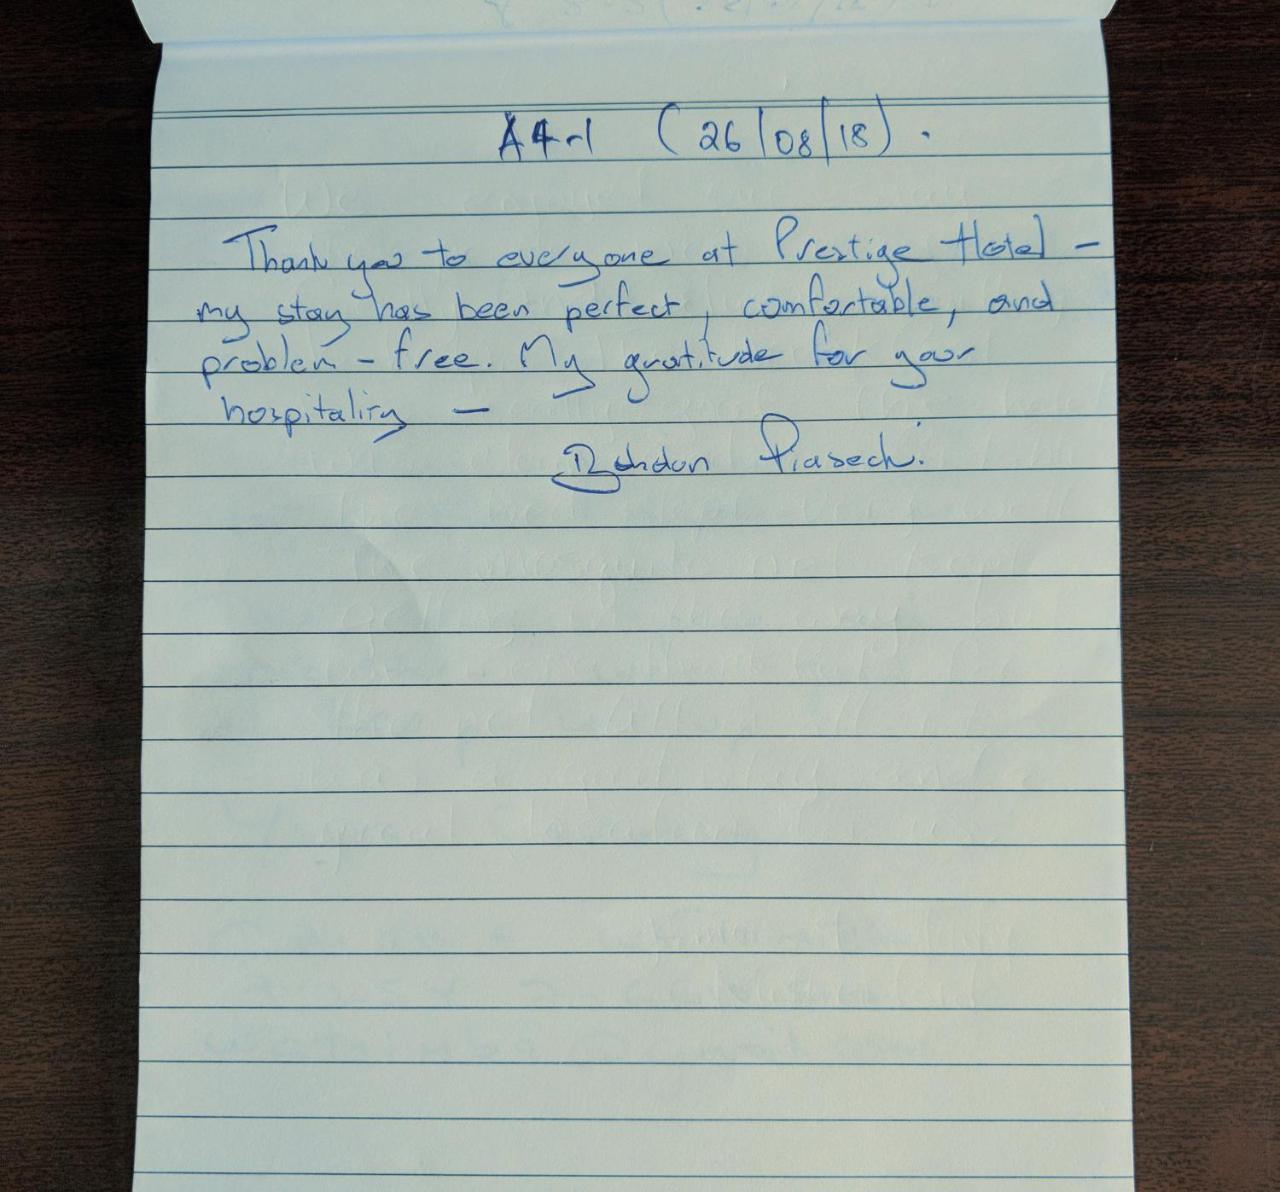 A4-1 (26/08/18).
Thank you to everyone at Prestige Hotel -
my stay has been perfect, comfortable, and
problem - free. My gratitude for your
hospitality -
Bohdan Piasecki